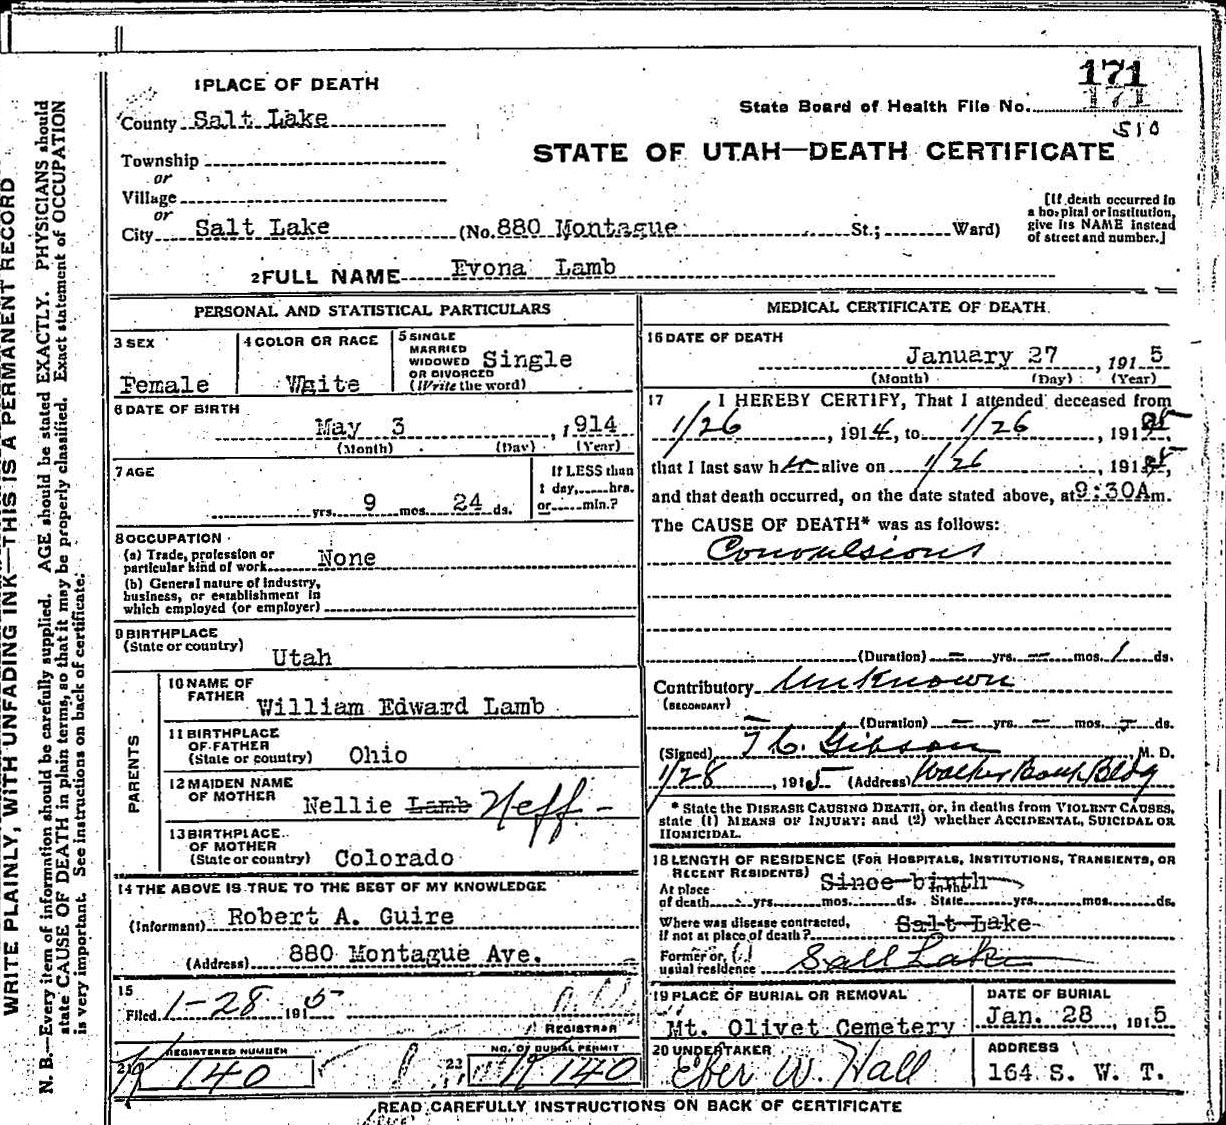 171
171
510
1 PLACE OF DEATH
State Board of Health File No.
County Salt Lake
STATE OF UTAH—DEATH CERTIFICATE
Township
or
Village
or
City Salt Lake (No. 880 Montague St.; Ward)
[If death occurred in a hospital or institution, give its NAME instead of street and number.]
2 FULL NAME Evona Lamb
PERSONAL AND STATISTICAL PARTICULARS
3 SEX
Female
4 COLOR OR RACE
White
5 SINGLE
MARRIED
WIDOWED
OR DIVORCED
(Write the word)
Single
6 DATE OF BIRTH
May 3, 1914
(Month) (Day) (Year)
7 AGE
yrs. 9 mos. 24 ds.
If LESS than
1 day, hrs.
or min.?
8 OCCUPATION
(a) Trade, profession or
particular kind of work None
(b) General nature of industry,
business, or establishment in
which employed (or employer)
9 BIRTHPLACE
(State or country)
Utah
PARENTS
10 NAME OF
FATHER
William Edward Lamb
11 BIRTHPLACE
OF FATHER
(State or country) Ohio
12 MAIDEN NAME
OF MOTHER
Nellie Lamb Neff
13 BIRTHPLACE
OF MOTHER
(State or country) Colorado
14 THE ABOVE IS TRUE TO THE BEST OF MY KNOWLEDGE
(Informant) Robert A. Guire
(Address) 880 Montague Ave.
15
Filed 1-28 1915
REGISTRAR
REGISTERED NUMBER
21 140
22 NO. OF BURIAL PERMIT
140
MEDICAL CERTIFICATE OF DEATH
16 DATE OF DEATH
January 27, 1915
(Month) (Day) (Year)
17 I HEREBY CERTIFY, That I attended deceased from
1/26, 1914, to 1/26, 1915
that I last saw her alive on 1/26, 1915,
and that death occurred, on the date stated above, at 9:30A m.
The CAUSE OF DEATH* was as follows:
Convulsions
(Duration) — yrs. — mos. 1 ds.
Contributory Unknown
(SECONDARY)
(Duration) — yrs. — mos. ds.
(Signed) T C. Gibson M. D.
1/28, 1915 (Address) Walker Bank Bldg
* State the DISEASE CAUSING DEATH, or, in deaths from VIOLENT CAUSES,
state (1) MEANS OF INJURY; and (2) whether ACCIDENTAL, SUICIDAL OR
HOMICIDAL.
18 LENGTH OF RESIDENCE (FOR HOSPITALS, INSTITUTIONS, TRANSIENTS, OR
RECENT RESIDENTS) Since birth
At place In the
of death yrs. mos. ds. State yrs. mos. ds.
Where was disease contracted,
if not at place of death? Salt Lake
Former or
usual residence Salt Lake
19 PLACE OF BURIAL OR REMOVAL
Mt. Olivet Cemetery
DATE OF BURIAL
Jan. 28, 1915
20 UNDERTAKER
Eber W. Hall
ADDRESS
164 S. W. T.
READ CAREFULLY INSTRUCTIONS ON BACK OF CERTIFICATE
WRITE PLAINLY, WITH UNFADING INK—THIS IS A PERMANENT RECORD
N. B.—Every item of information should be carefully supplied. AGE should be stated EXACTLY. PHYSICIANS should
state CAUSE OF DEATH in plain terms, so that it may be properly classified. Exact statement of OCCUPATION
is very important. See instructions on back of certificate.